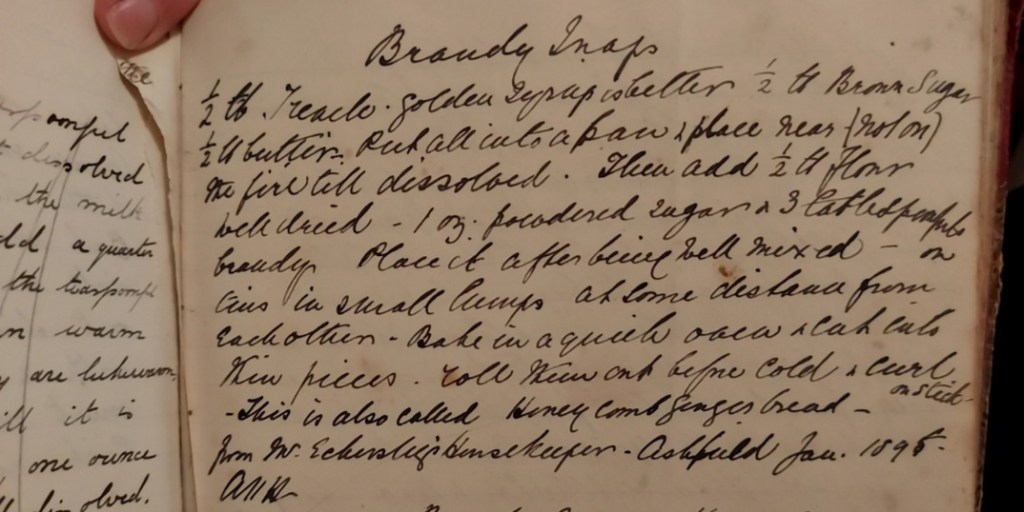 the
Brandy Snaps
½ lb. Treacle. golden Syrup is better ½ lb Brown Sugar
½ lb butter. Put all into a pan & place near (not on)
the fire till dissolved. Then add ½ lb flour
well dried - 1 oz. powdered sugar & 3 tablespoonfuls
brandy. Place it after being well mixed - on
tins in small lumps at some distance from
each other - Bake in a quick oven & cut into
thin pieces. roll them out before cold & curl
on stick -
- This is also called Honey comb gingerbread -
from Mr. Housekeeper - Ashfield Jan. 189
spoonful
dissolved
the milk
a quarter
the teaspoonful
warm
are lukewarm,
it is
one ounce
dissolved.